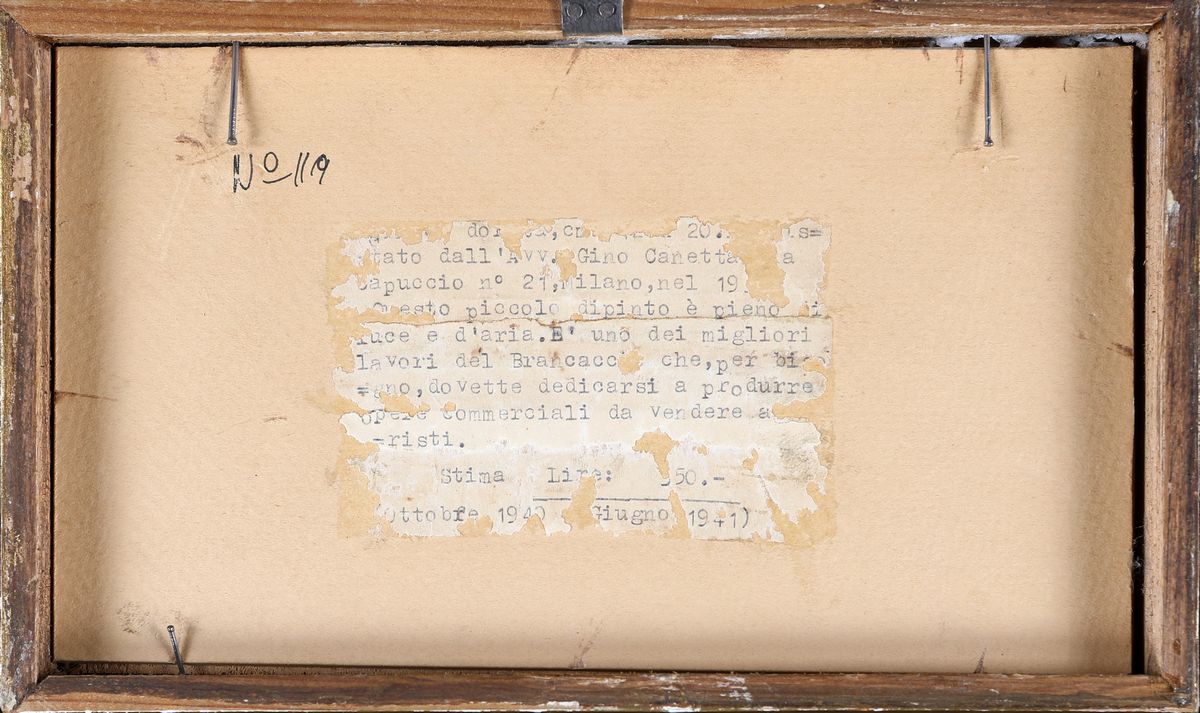 Nº 119
20.
tato dall'Avv. Gino Canetta
Capuccio nº 21, Milano, nel 19
Questo piccolo dipinto è pieno
luce e d'aria. E' uno dei migliori
lavori del Brancacci che, per bi
=gno, dovette dedicarsi a produrre
opere commerciali da vendere a
risti.
Stima Lire: 50.-
Ottobre 1940 Giugno 1941)